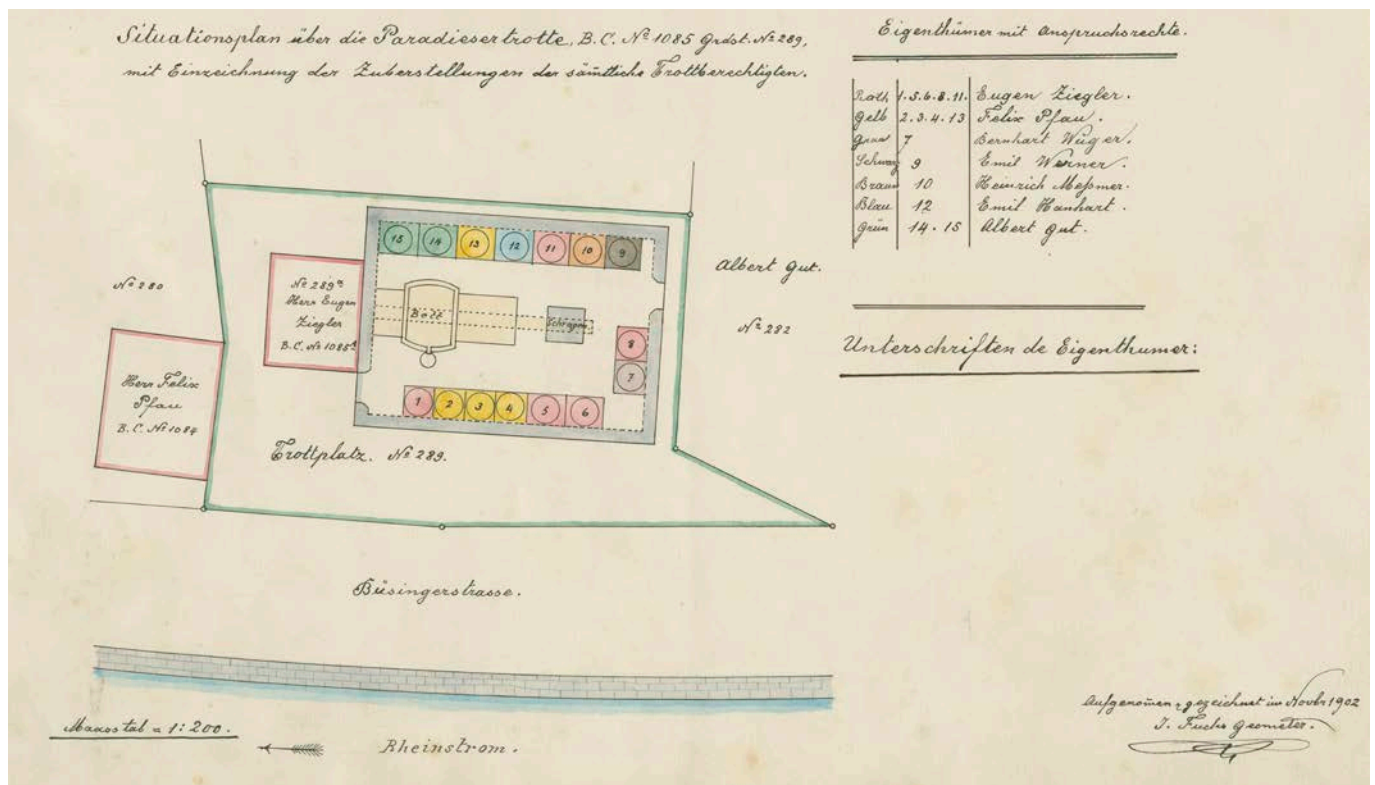 Situationsplan über die Paradiesertrotte, B.C. Nº 1085 Grdst. Nº 289,
mit Einzeichnung der Zuberstellungen der säm̄tliche Trottberechtigten.
Eigenthümer mit Anspruchsrechte.
Roth 1.5.6.8.11. Eugen Ziegler.
Gelb 2.3.4.13 Felix Pfau.
Grau 7 Bernhart Wüger.
Schwarz 9 Emil Werner.
Braun 10 Heinrich Meßmer.
Blau 12 Emil Hanhart.
Grün 14.15 Albert Gut.
Unterschriften de Eigenthumer:
15 14 13 12 11 10 9
Albert Gut.
Nº 282
Nº 280
Nº 289ª
Herr Eugen
Ziegler
B.C. Nº 1085ª
Bett
8
7
Herr Felix
Pfau
B.C. Nº 1084
1 2 3 4 5 6
Trottplatz. Nº 289.
Büsingerstrasse.
Maasstab = 1:200.
Rheinstrom.
Aufgenom̄en & gezeichnet im Novbr 1902
J. Fuchs Geometer.